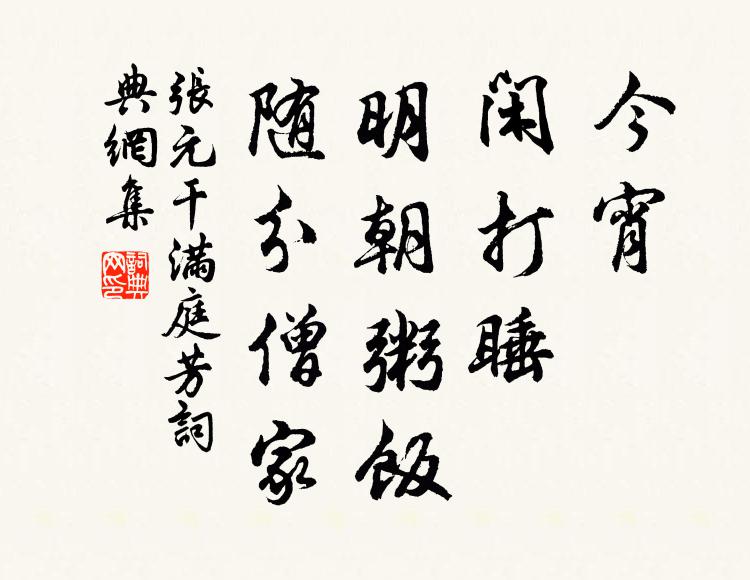 今宵
閑打睡
明朝粥飯
随分僧家
張元干满庭芳詞
典網集
詞典网印